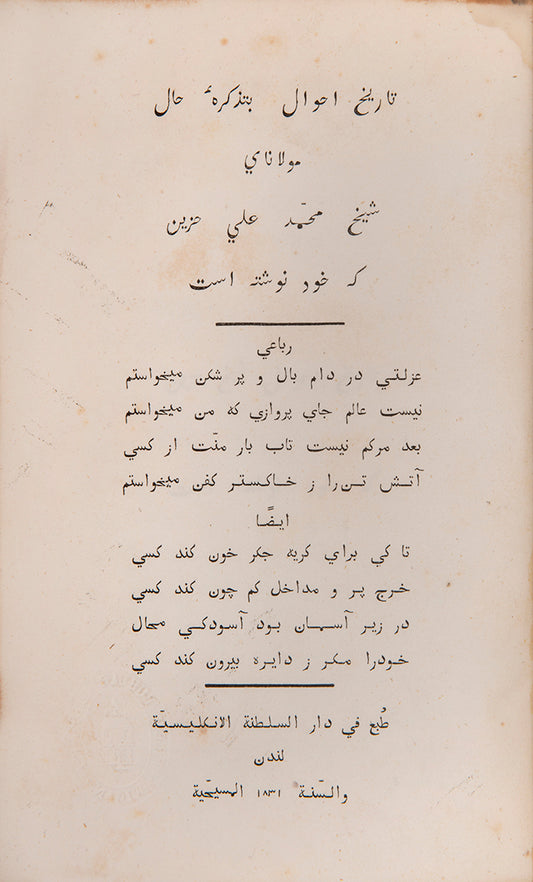 تاريخ احوال بتذكرهٔ حال
مولاناي
شيخ محمّد علي حزين
كه خود نوشته است
رباعي
عزلتي در دام بال و پر شكن ميخواستم
نيست عالم جاي پروازي كه من ميخواستم
بعد مركم نيست تاب بار منّت از كسي
آتش تن را ز خاكستر كفن ميخواستم
ايضًا
تا كي براي كريه جكر خون كند كسي
خرج پر و مداخل كم چون كند كسي
در زير آسمان بود آسودكي محال
خودرا مكر ز دايره بيرون كند كسي
طُبع في دار السلطنة الانكليسيّة
لندن
والسّنة ١٨٣١ المسيحيّة